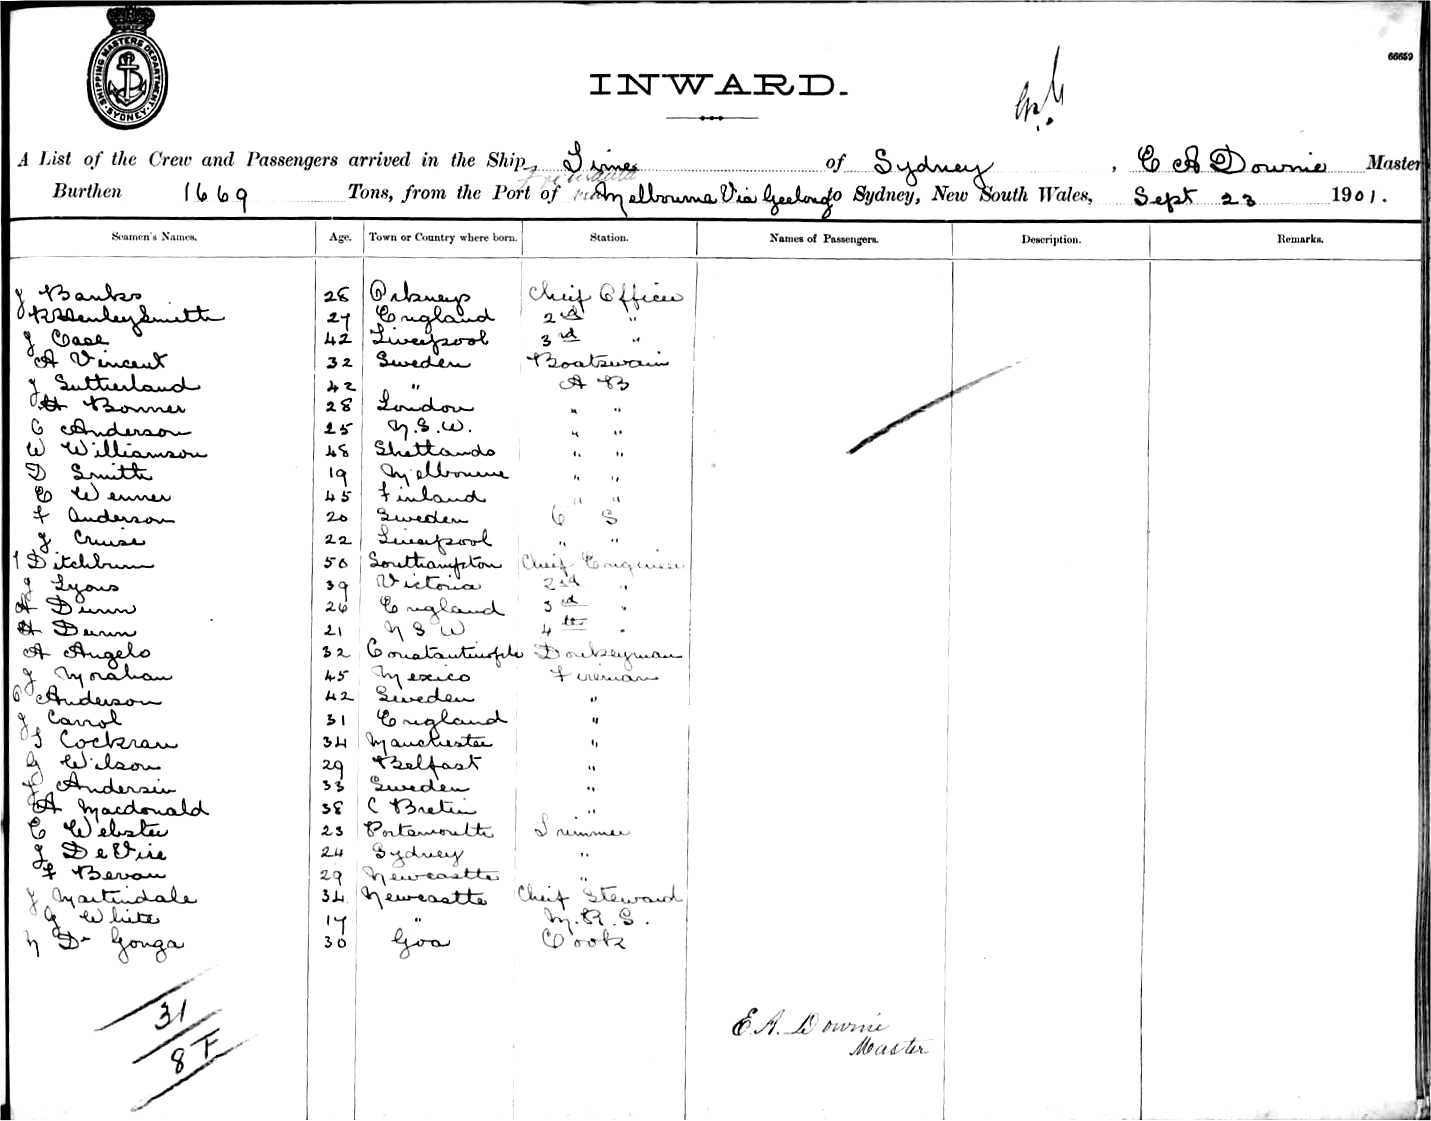 SHIPPING MASTERS DEPARTMENT SYDNEY
66659
INWARD.
A List of the Crew and Passengers arrived in the Ship Time of Sydney, E A Downie Master
Burthen 1669 Tons, from the Port of Melbourne Via Geelong to Sydney, New South Wales, Sept 23 1901.
Seamen's Names. Age. Town or Country where born. Station. Names of Passengers. Description. Remarks.
J Banks 28 Orkneys Cheif Officer
R Henley Smith 27 England 2nd "
J Case 42 Liverpool 3rd "
A Vincent 32 Sweden Boatswain
J Sutherland 42 " A B
H Bonner 28 London " "
C Anderson 25 N.S.W. " "
W Williamson 48 Shettlands " "
D Smith 19 Melbourne " "
E Wenner 45 Finland " "
F Anderson 20 Sweden O S
J Cruise 22 Liverpool " "
T Ditchburn 50 Southampton Cheif Engineer
J Lyons 39 Victoria 2nd "
A Dunn 26 England 3rd "
H Dunn 21 N S W 4th "
A Angelo 32 Constantinople Donkeyman
J Morahan 45 Mexico Fireman
C Anderson 42 Sweden "
J Carrol 31 England "
S Cockran 34 Manchester "
G Wilson 29 Belfast "
J Andersin 33 Sweden "
A Macdonald 38 C Bretin "
E Webster 23 Portsmouth Trimmer
J De Vire 24 Sydney "
F Bevan 29 Newcastle "
J Martindale 34 Newcastle Cheif Steward
G White 17 " M.R.S.
N De Gonga 30 Goa Cook
31
8 F
E.A. Downie
Master